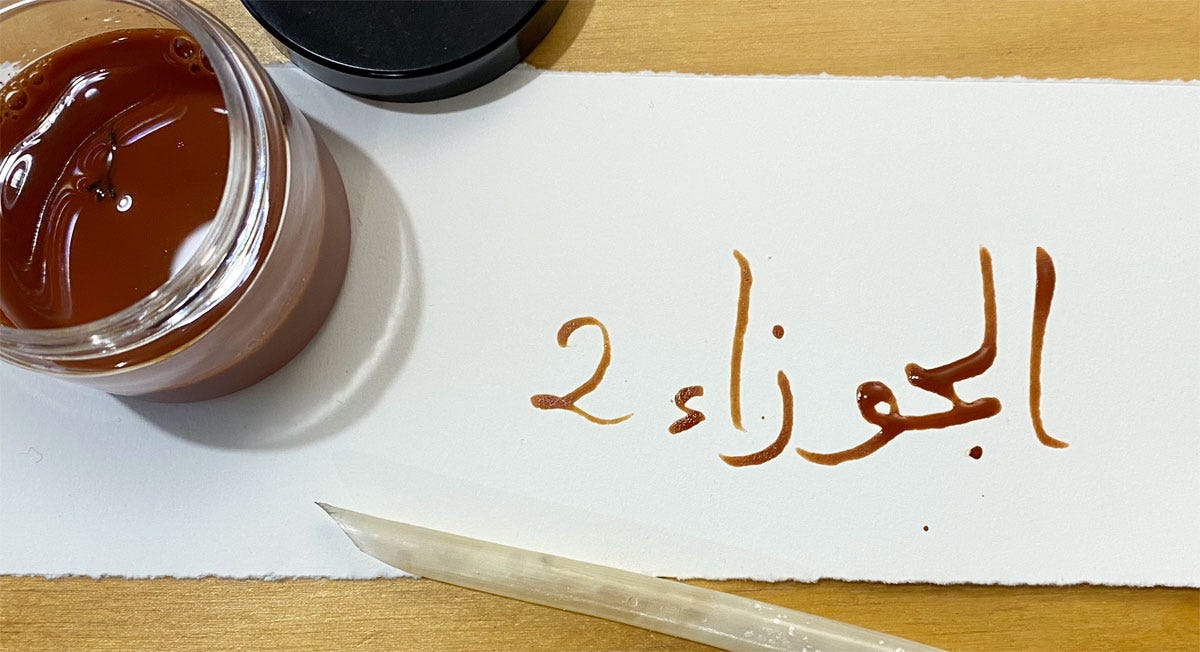 الجوزاء 2